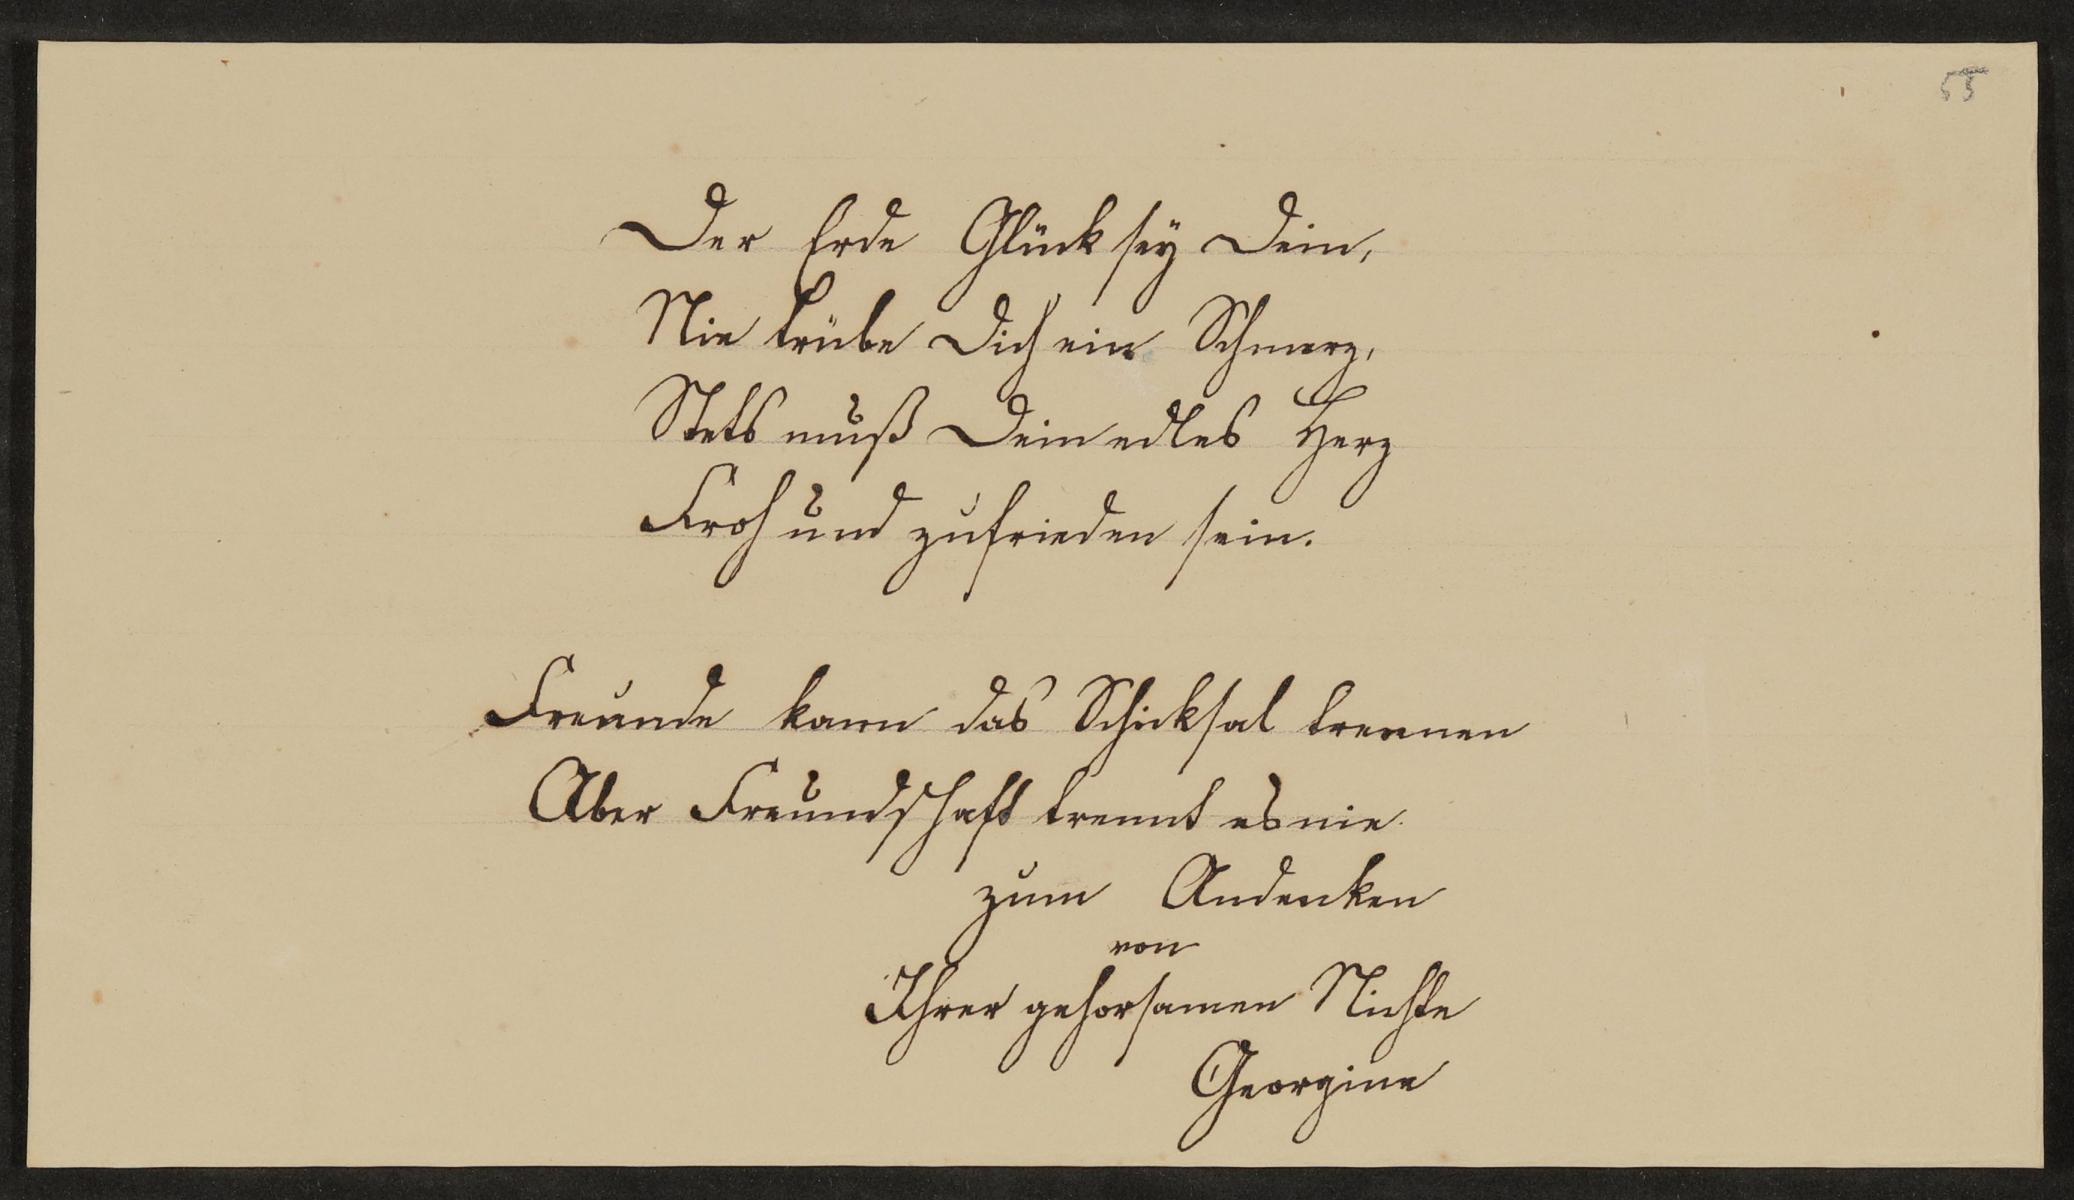 55
Der Erde Glück seÿ Dein,
Nie trübe Dich ein Schmerz,
Stets muß Dein edles Herz
Froh und zufrieden sein.
Freunde kann das Schicksal trennen
Aber Freundschaft trennt es nie.
zum Andenken
von
Ihrer gehorsamen Nichte
Georgine